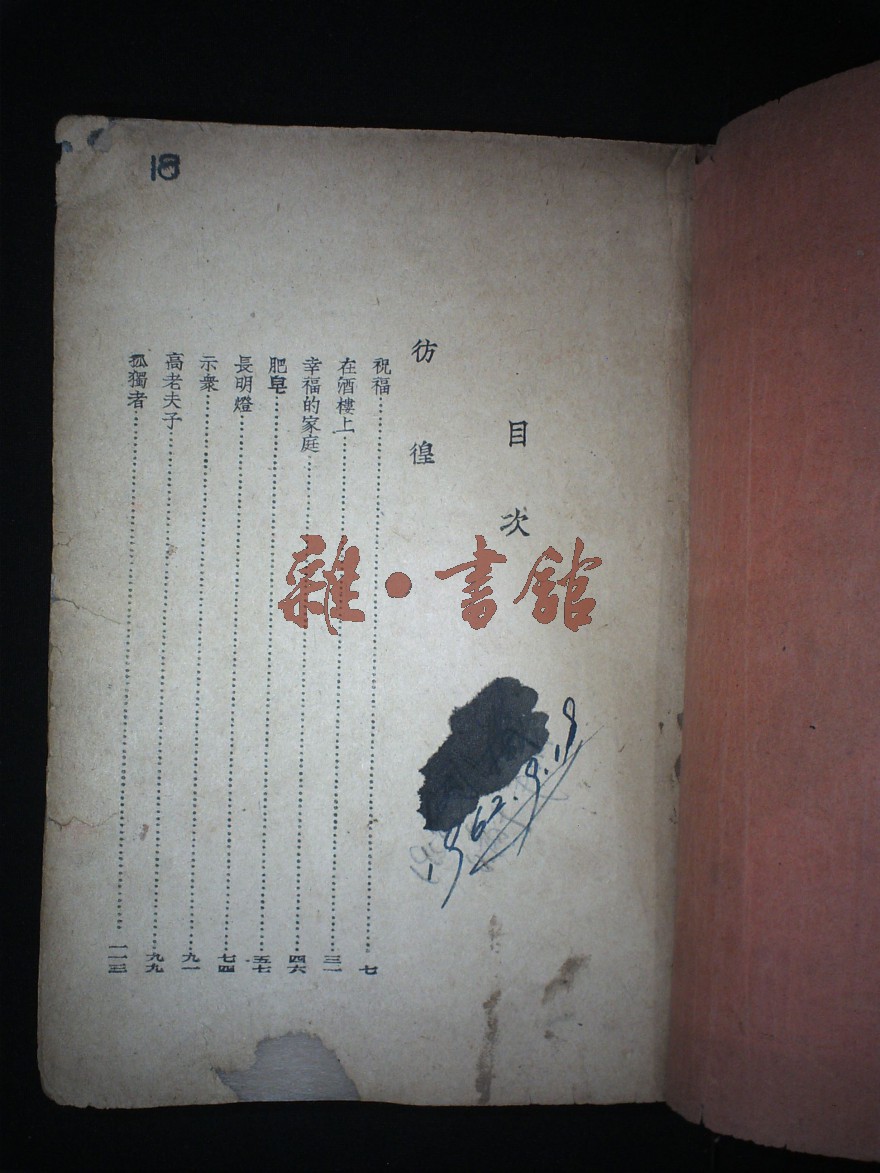 18
目次
彷徨
祝福……七
在酒樓上……三一
幸福的家庭……四六
肥皂……五七
長明燈……七四
示衆……九一
高老夫子……九九
孤獨者……一一三
雜·書館
1962.9.18